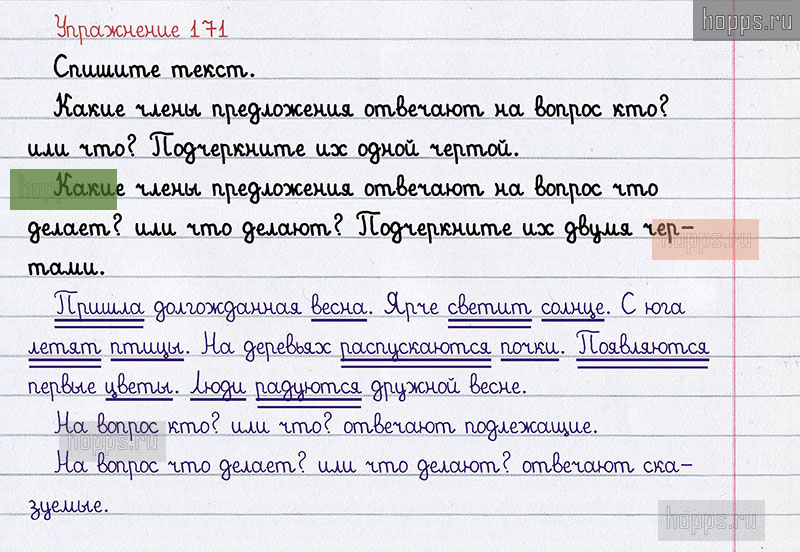 hopps.ru
Упражнение 171
Спишите текст.
Какие члены предложения отвечают на вопрос кто?
или что? Подчеркните их одной чертой.
Какие члены предложения отвечают на вопрос что
делает? или что делают? Подчеркните их двумя чер-
тами.
hopps.ru
Пришла долгожданная весна. Ярче светит солнце. С юга
летят птицы. На деревьях распускаются почки. Появляются
первые цветы. Люди радуются дружной весне.
На вопрос кто? или что? отвечают подлежащие.
hopps.ru
На вопрос что делает? или что делают? отвечают ска-
зуемые.
hopps.ru